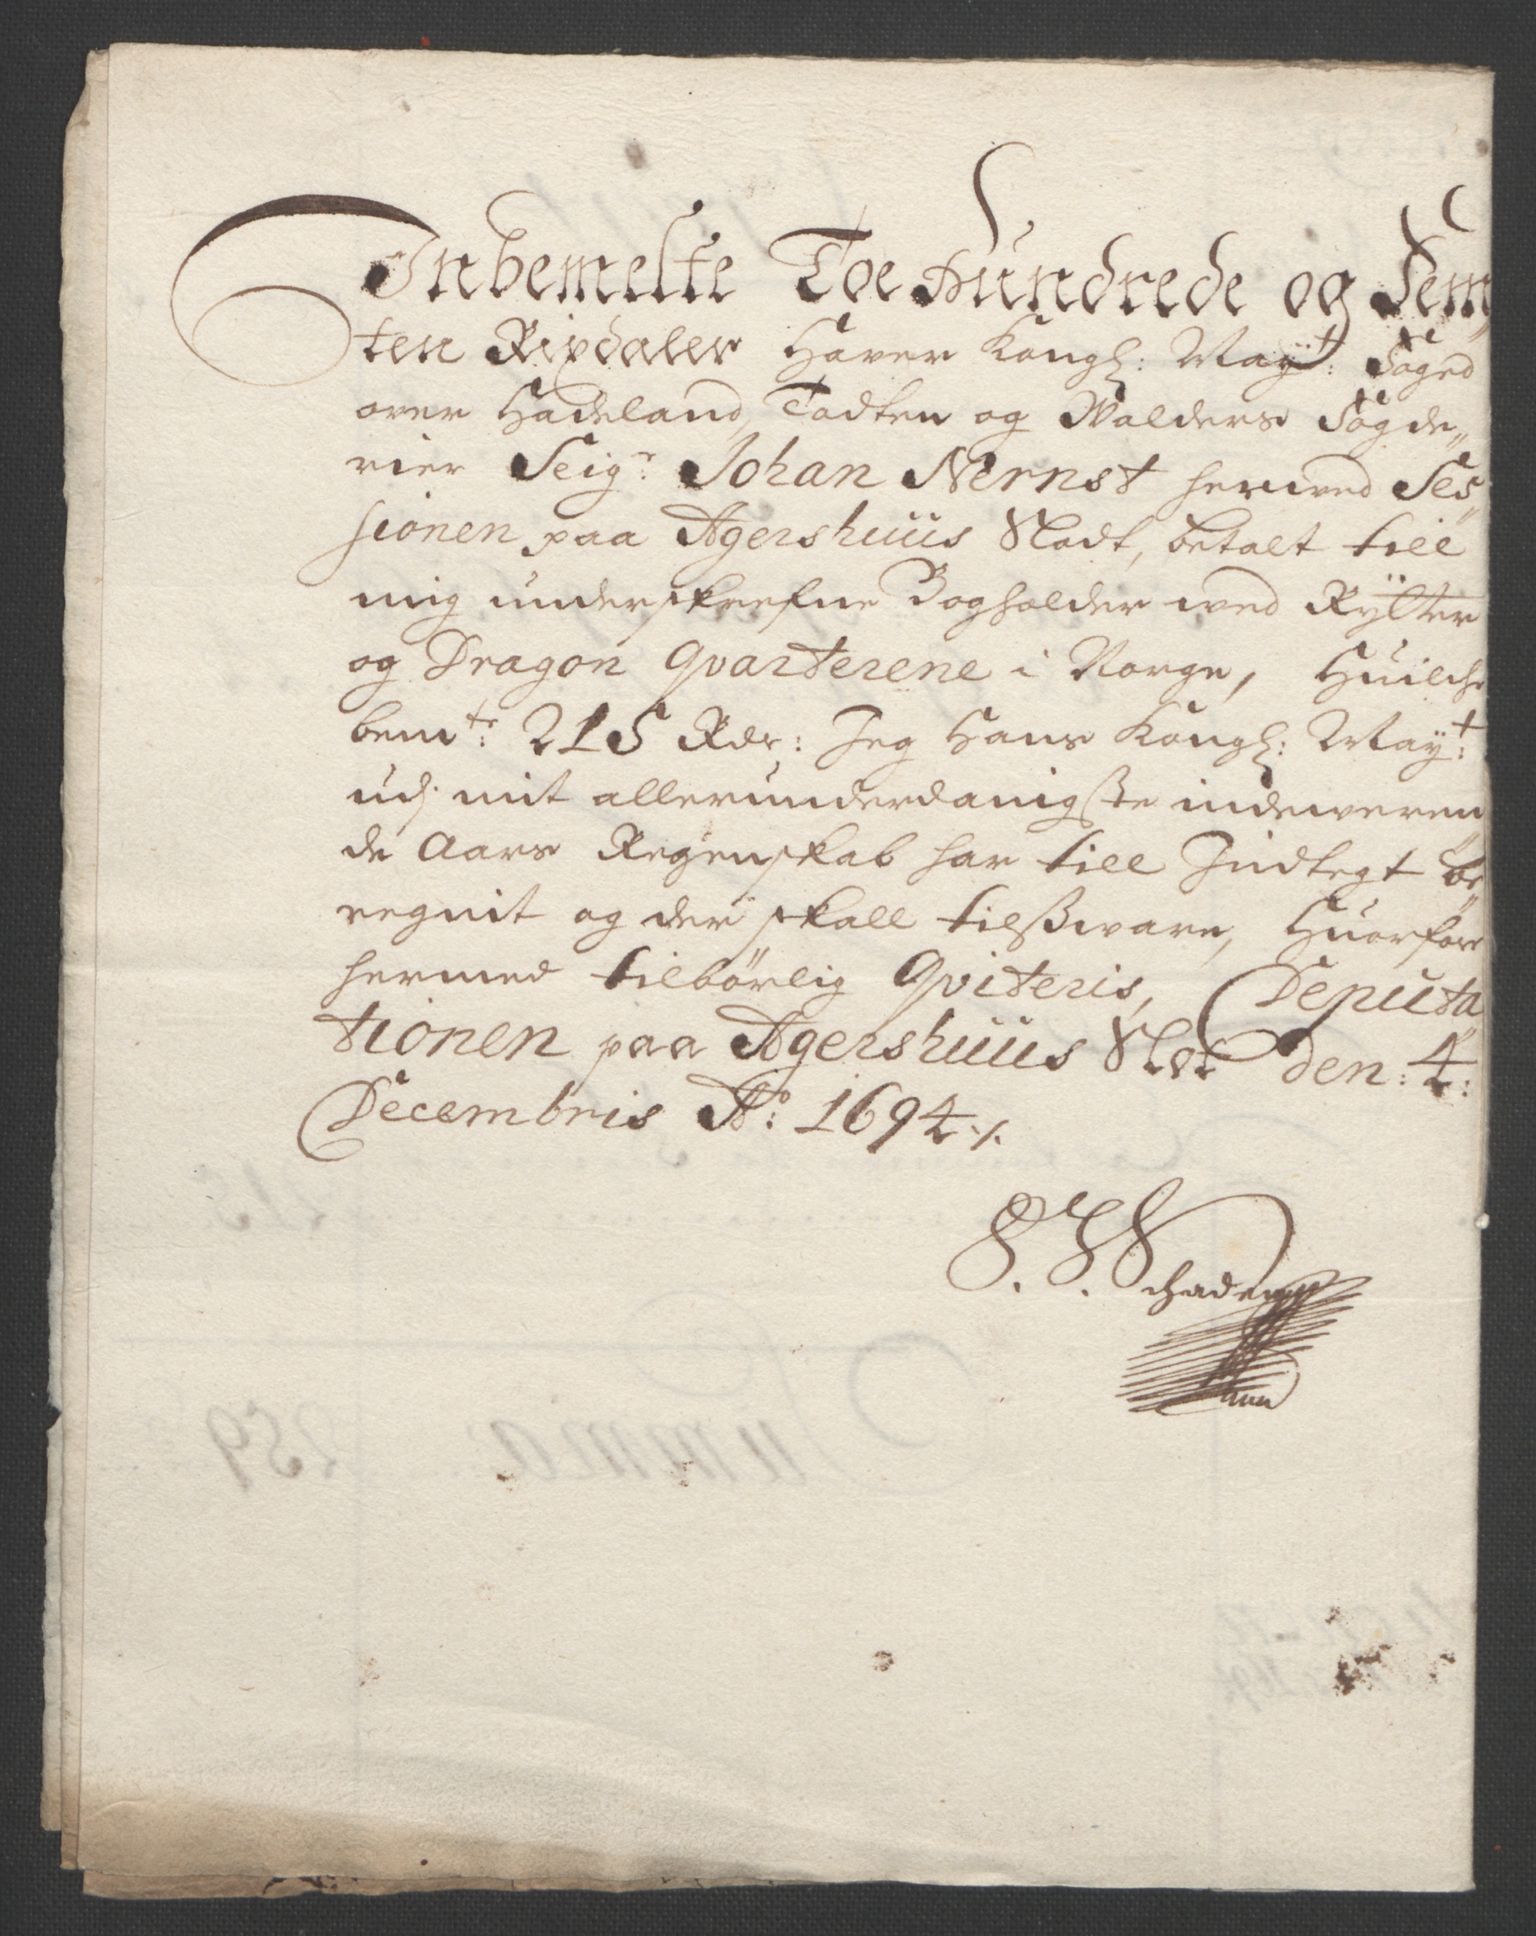 Inbemelte Toe Hundrede og Fem„
ten Rixdaler Haver Kongl: May:t Foged
over Hadeland, Todten og Walders Fogde„
rier Seig:r Johan Nernst herwed Ses„
sionen paa Agershuus Slodt, betalt till
mig underskrefne Bogholder wed Rytter
og Dragon Qvarterene i Norge, Huilche
bem:te 215 Rdr: Jeg Hans Kongl: May:t
udj mit allerunderdanigste indeweren„
de Aars Regenskab har till Indtegt be„
regnit og der skall tilsware, Huorfore
hermed tilbørlig Qviteris, Deputa„
tionen paa Agershuus Slot den: 4:
Decembris A:o 1694 ./.
Schaden